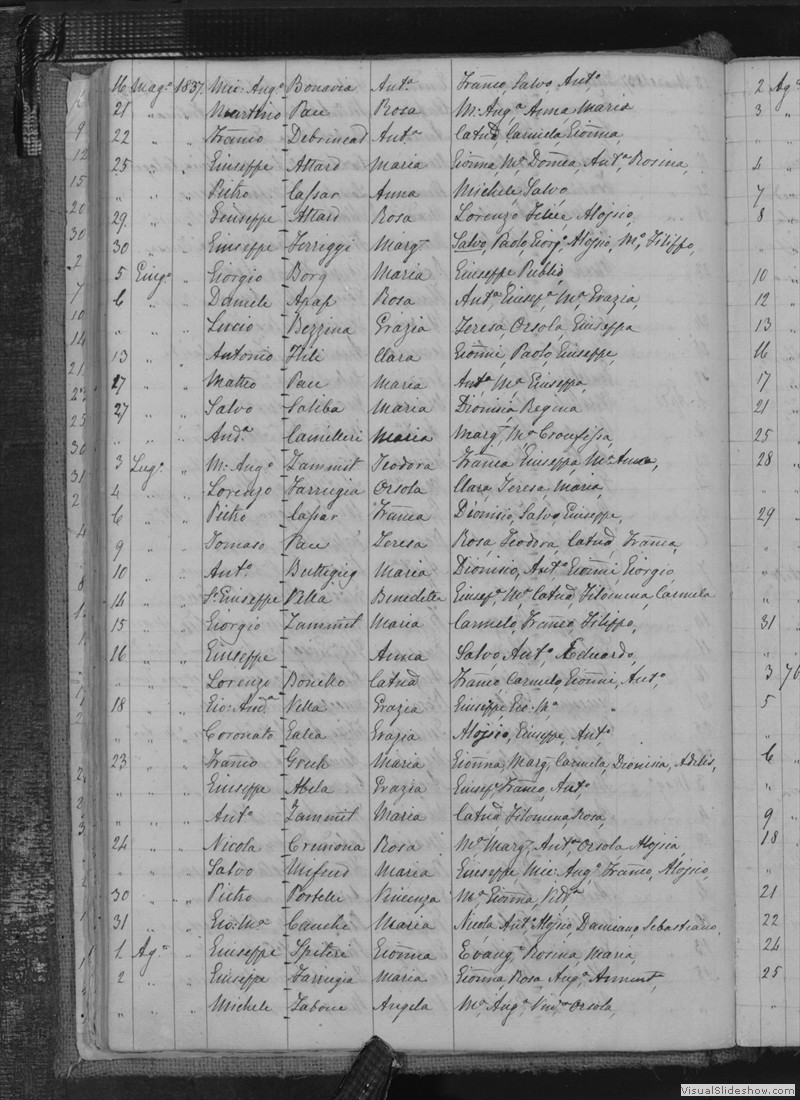 16 Magᵒ 1837 Mic: Angᵒ Bonavia Antᵃ Franco, Salvo, Antᵒ
21 " " Martino Pace Rosa Mic: Angᵃ Anna Maria
22 " " Franco Debrincad Antᵃ Catnᵃ Carmela, Gionna,
25 " " Giuseppe Attard Maria Gionna, Mᵃ, Domca, Antᵃ, Rosina,
" " " Pietro Cassar Anna Michele, Salvo,
29 " " Giuseppe Attard Rosa Lorenzo, Felice, Aloisio,
30 " " Giuseppe Ferreggi Margᵗ Salvo, Paolo, Giorgᵒ, Aloisio, Mᵒ, Filippo,
5 Giugᵒ " Giorgio Borg Maria Giuseppe Publio
6 " " Daniele Apap Rosa Antᵃ, Giusepᵃ, Mᵃ, Grazia,
" " " Lucio Bezzina Grazia Teresa, Orsola, Giuseppa
13 " " Antonio Fili Clara Gionni, Paolo, Giuseppe,
17 " " Matteo Pace Maria Antᵃ, Mᵃ, Giuseppa,
27 " " Salvo Saliba Maria Dionisia Regina
" " " Andᵃ Camilleri Maria Margᵗ, Mᵃ Crocifissa,
3 Lugᵒ " M: Angᵒ Zammit Teodora Franca, Giuseppa, Mᵃ Anna,
4 " " Lorenzo Farrugia Orsola Clara, Teresa, Maria,
6 " " Pietro Cassar Franca Dionisio, Salvo, Giuseppe,
9 " " Tomaso Pace Teresa Rosa, Teodora, Catnᵃ, Franca,
10 " " Antᵒ Buttigieg Maria Dionisio, Antᵒ, Gionni, Giorgio
14 " " Sᵗ Giuseppe Vella Benedetta Giusepᵃ, Mᵃ, Catnᵃ, Filomena, Carmela
15 " " Giorgio Zammit Maria Carmelo, Franco, Filippo,
16 " " Giuseppe Anna Salvo, Antᵒ, Eduardo,
" " " Lorenzo Bonello Catnᵃ Franco, Carmelo, Gionni, Antᵒ,
18 " " Gio: Andᵃ Vella Grazia Giuseppe, Gio: Mᵃ
" " " Coronato Galea Grazia Aloisio, Giuseppe, Antᵒ
23 " " Franco Grech Maria Gionna, Margᵗ, Carmela, Dionisia,
" " " Giuseppe Abela Grazia Giusepᵉ, Franco, Antᵒ
" " " Antᵒ Zammit Maria Catnᵃ, Filomena Rosa,
24 " " Nicola Cremona Rosa Mᵃ, Margᵗ, Antᵃ, Orsola, Aloisia
" " " Salvo Mifsud Maria Giuseppe, Mic: Angᵒ, Franco, Aloisio,
30 " " Pietro Portelli Vincenza Mᵃ, Gionna,
31 " " Gio: Mᵃ Cauchi Maria Nicola, Antᵒ, Aloisio, Damiano, Sebastiano,
1 Agᵒ " Giuseppe Spiteri Gionna Evangᵃ, Rosina, Maria,
2 " " Giuseppe Farrugia Maria Gionna, Rosa, Angᵃ,
" " " Michele Zabone Angela Mᵃ, Angᵃ, Orsola,
2 Agᵒ
3
4
7
8
10
12
13
16
17
21
25
28
29
31
3
5
6
9
18
21
22
24
25
VisualSlideshow.com